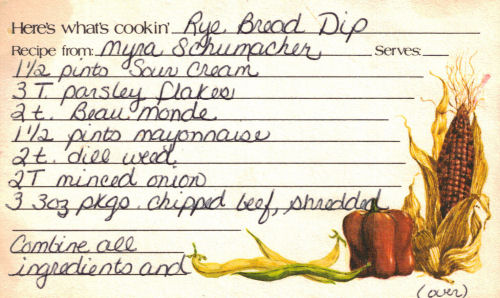 Here's what's cookin' Rye Bread Dip
Recipe from: Myra Schumacher Serves:
1 1/2 pints Sour Cream
3 T. parsley flakes
2 t. Beau monde
1 1/2 pints mayonnaise
2 t. dill weed
2 T minced onion
3 3oz pkgs. chipped beef, shredded
Combine all
ingredients and
(over)